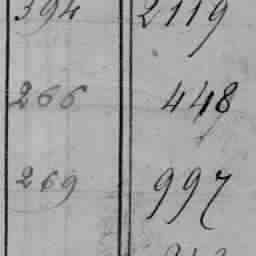 394 2119
266 448
269 997